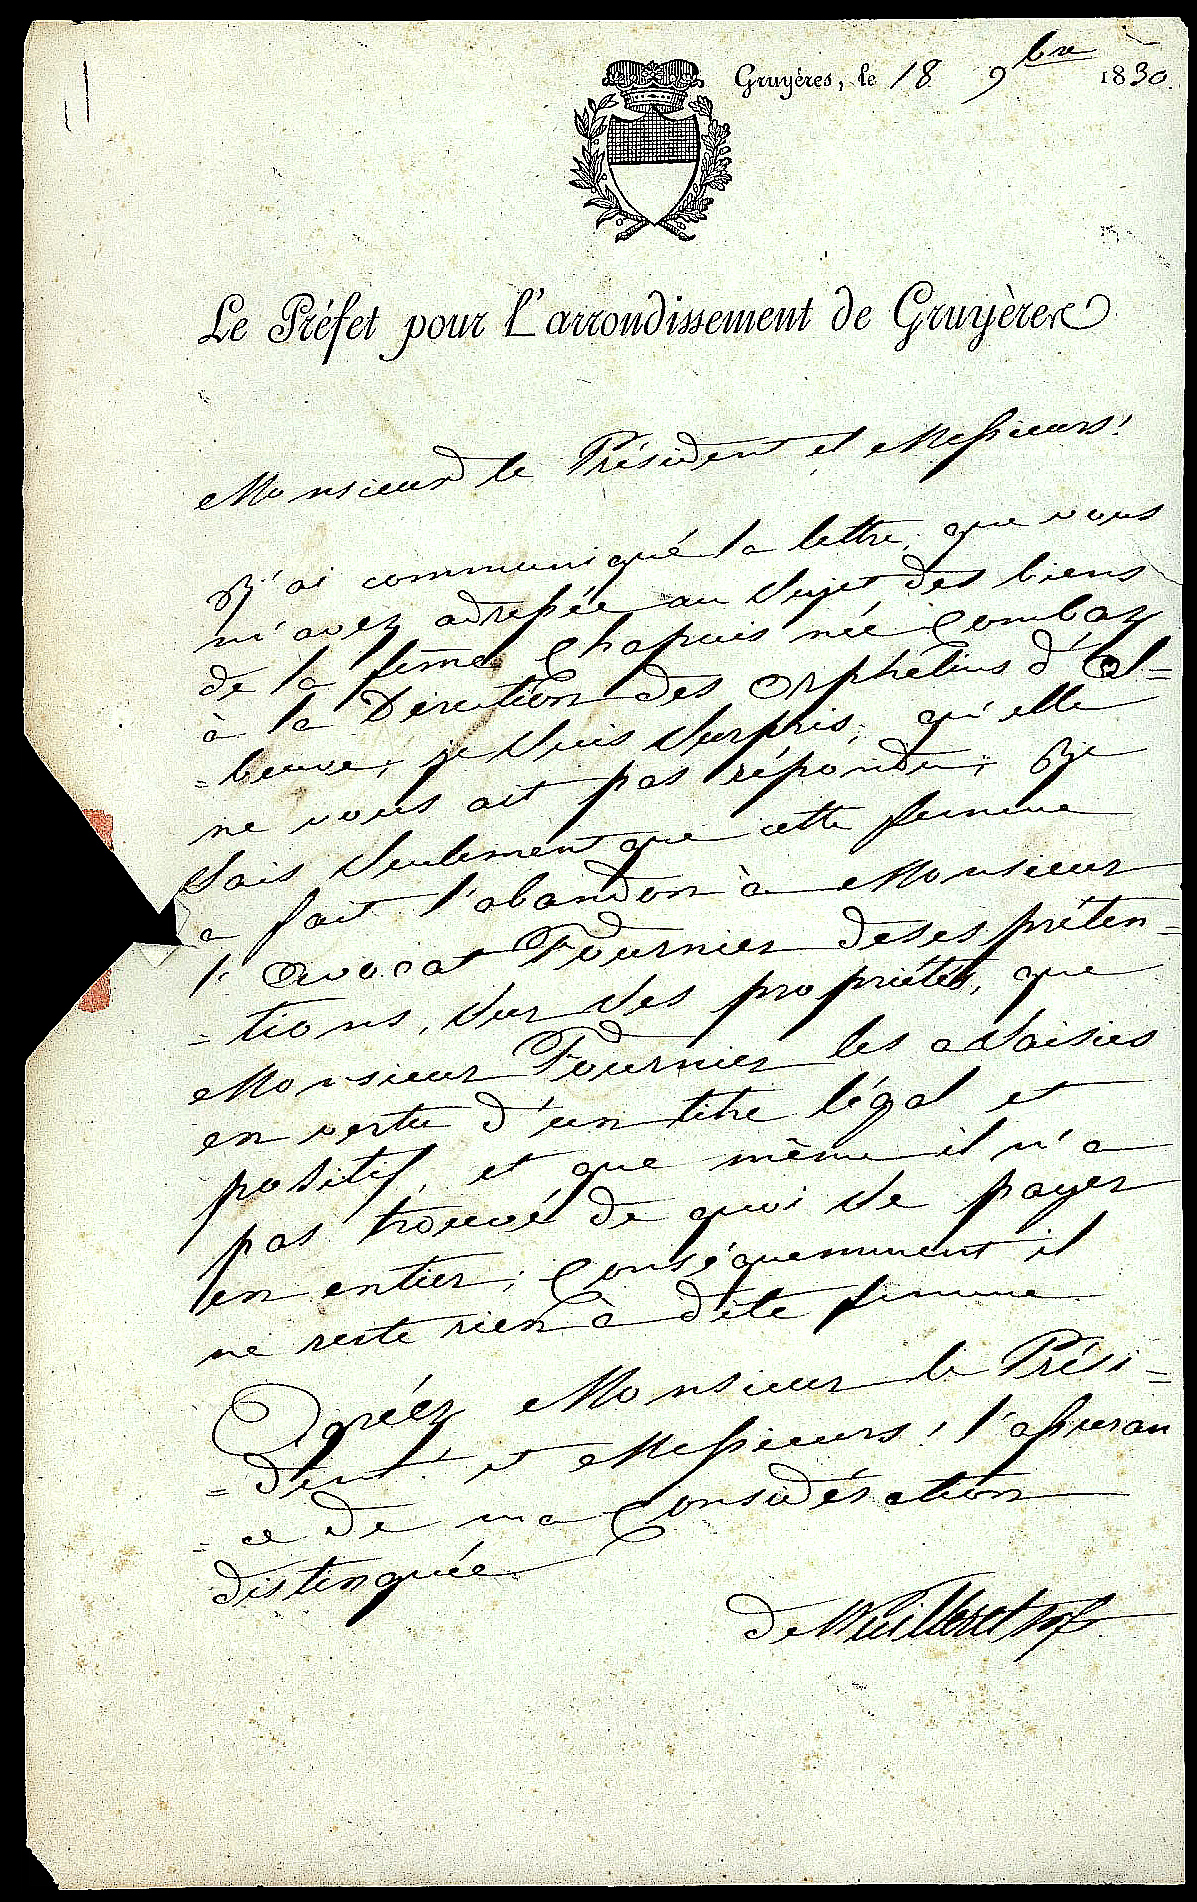 Gruyères, le 18 9bre 1830.
Le Préfet pour l'arrondissement de Gruyères
Monsieur le Président et Messieurs!
J'ai communiqué la lettre, que vous
m'avez adressée au sujet des biens
de la feme Chapuis née Combaz
à la Direction des Orphelins d'Al=
=beuve, je suis surpris, qu'elle
ne vous ait pas répondu; Je
sais seulement que cette femme
a fait l'abandon à Monsieur
l'Avocat Fournier de ses préten=
=tions, sur ses propriétés, que
Monsieur Fournier les a saisies
en vertu d'un titre légal et
positif, et que même il n'a
pas trouvé de quoi se payer
en entier; Conséquemment il
ne reste rien à dite femme.
Agréez Monsieur le Prési=
=dent! et Messieurs! l'assuran
=ce de ma Considération
distinguée
De Wuilleret